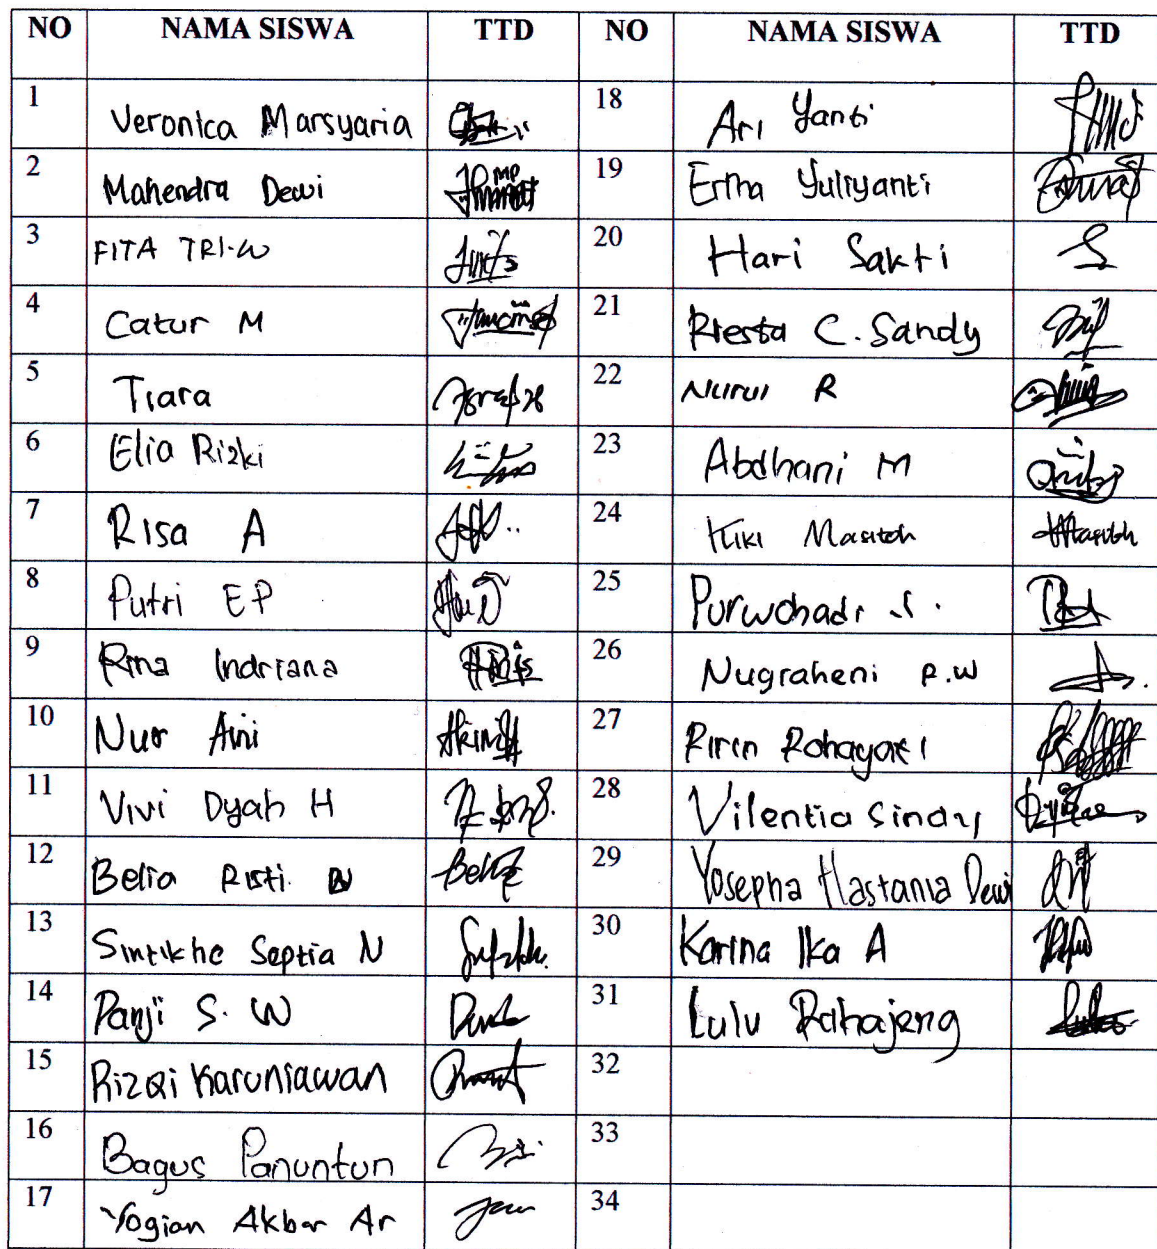 NO NAMA SISWA TTD NO NAMA SISWA TTD
1 Veronica Marsyaria 18 Ari Yanti
2 Mahendra Dewi 19 Erma Yuliyanti
3 FITA TRI-W 20 Hari Sakti
4 Catur M 21 Riesta C. Sandy
5 Tiara 22 Nurul R
6 Elia Rizki 23 Abdhani M
7 Risa A 24 Kiki Masitoh
8 Putri EP 25 Purwohadi S.
9 Rina Indriana 26 Nugraheni R.W
10 Nur Aini 27 Ririn Rohayati
11 Vivi Dyah H 28 Vilentia Sindy
12 Belia Risti. N 29 Yosepha Hastania Dewi
13 Sintikhe Septia N 30 Karina Ika A
14 Panji S. W 31 Lulu Rahajeng
15 Rizqi Karuniawan 32
16 Bagus Panuntun 33
17 Yogian Akbar Ar 34